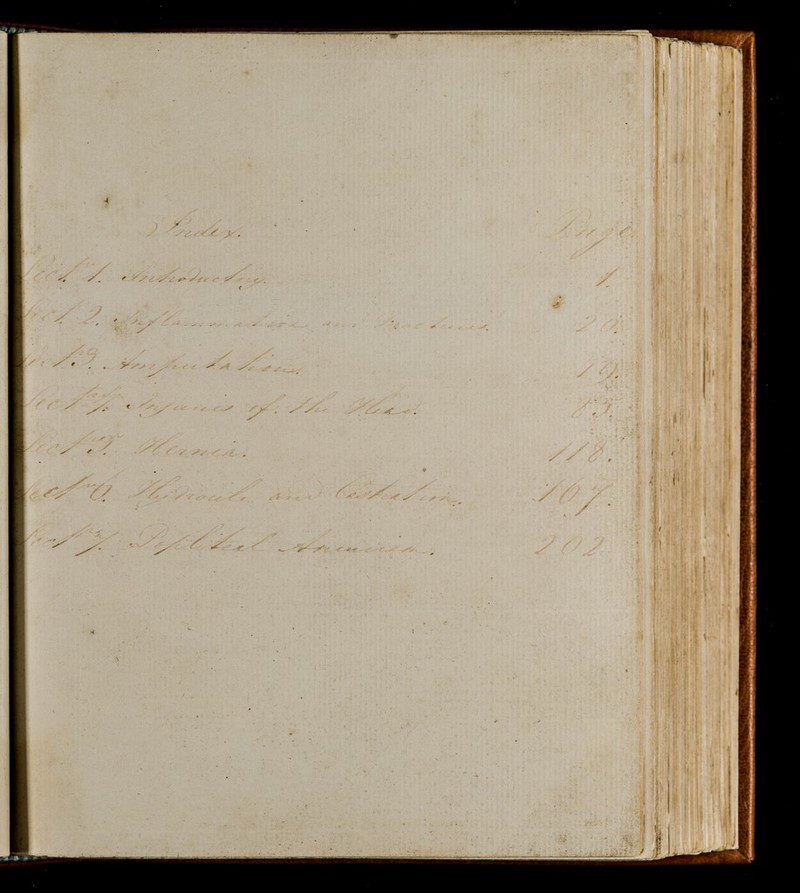 Index. Page
Lect. 1. Introductory. 1.
Lect. 2. Inflammation and 20.
Lect. 3. Amputations.
Lect. 4. Injuries of the Head. 85.
Lect. 5. Hernia. 118.
Lect. 6. Hydrocele and Castration. 167.
Lect. 7. Popliteal Aneurism. 202